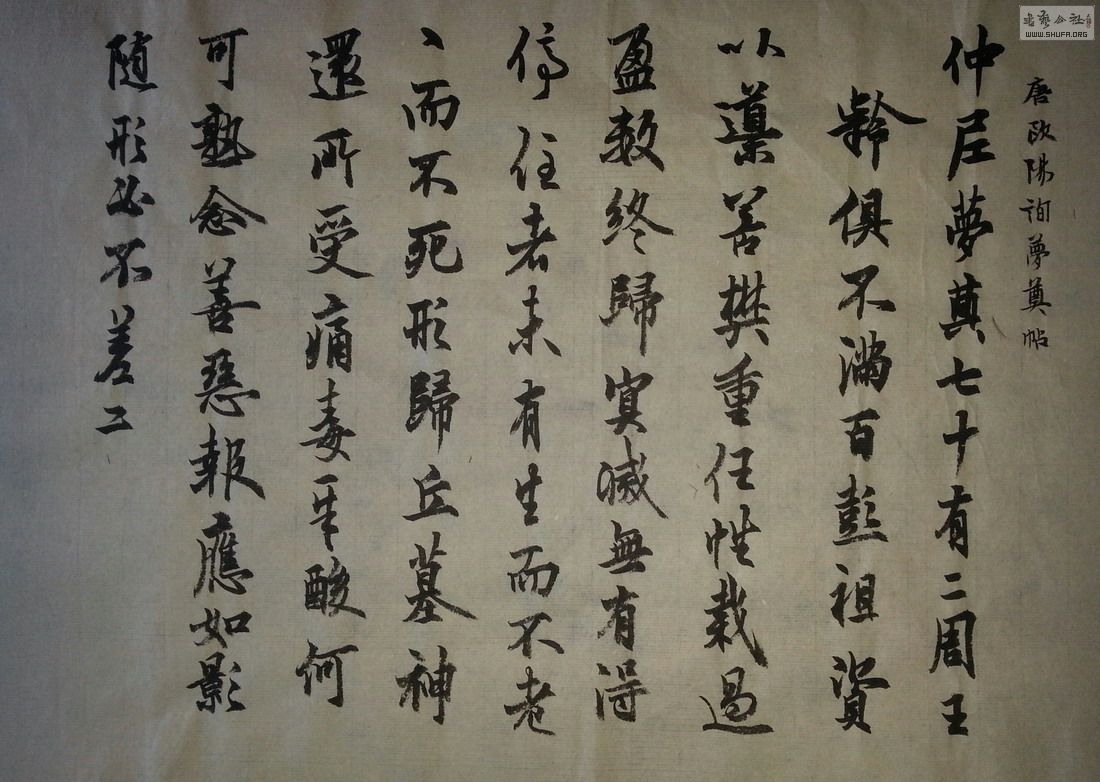 唐欧陽詢夢奠帖
仲尼夢奠七十有二周王
齡俱不滿百彭祖資
以導養樊重任性裁過
盈數終歸冥滅無有得
停住者未有生而不老
、而不死形歸丘墓神
還所受痛毒辛酸何
可熟念善惡報應如影
隨形必不差二
WWW.SHUFA.ORG